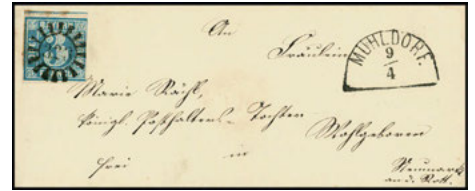 An
Fräulein
MÜHLDORF.
9
4
Marie Rächl,
königl. Posthalters-Tochter
Wohlgeboren
frei
in
Neumarkt
an d. Rott.